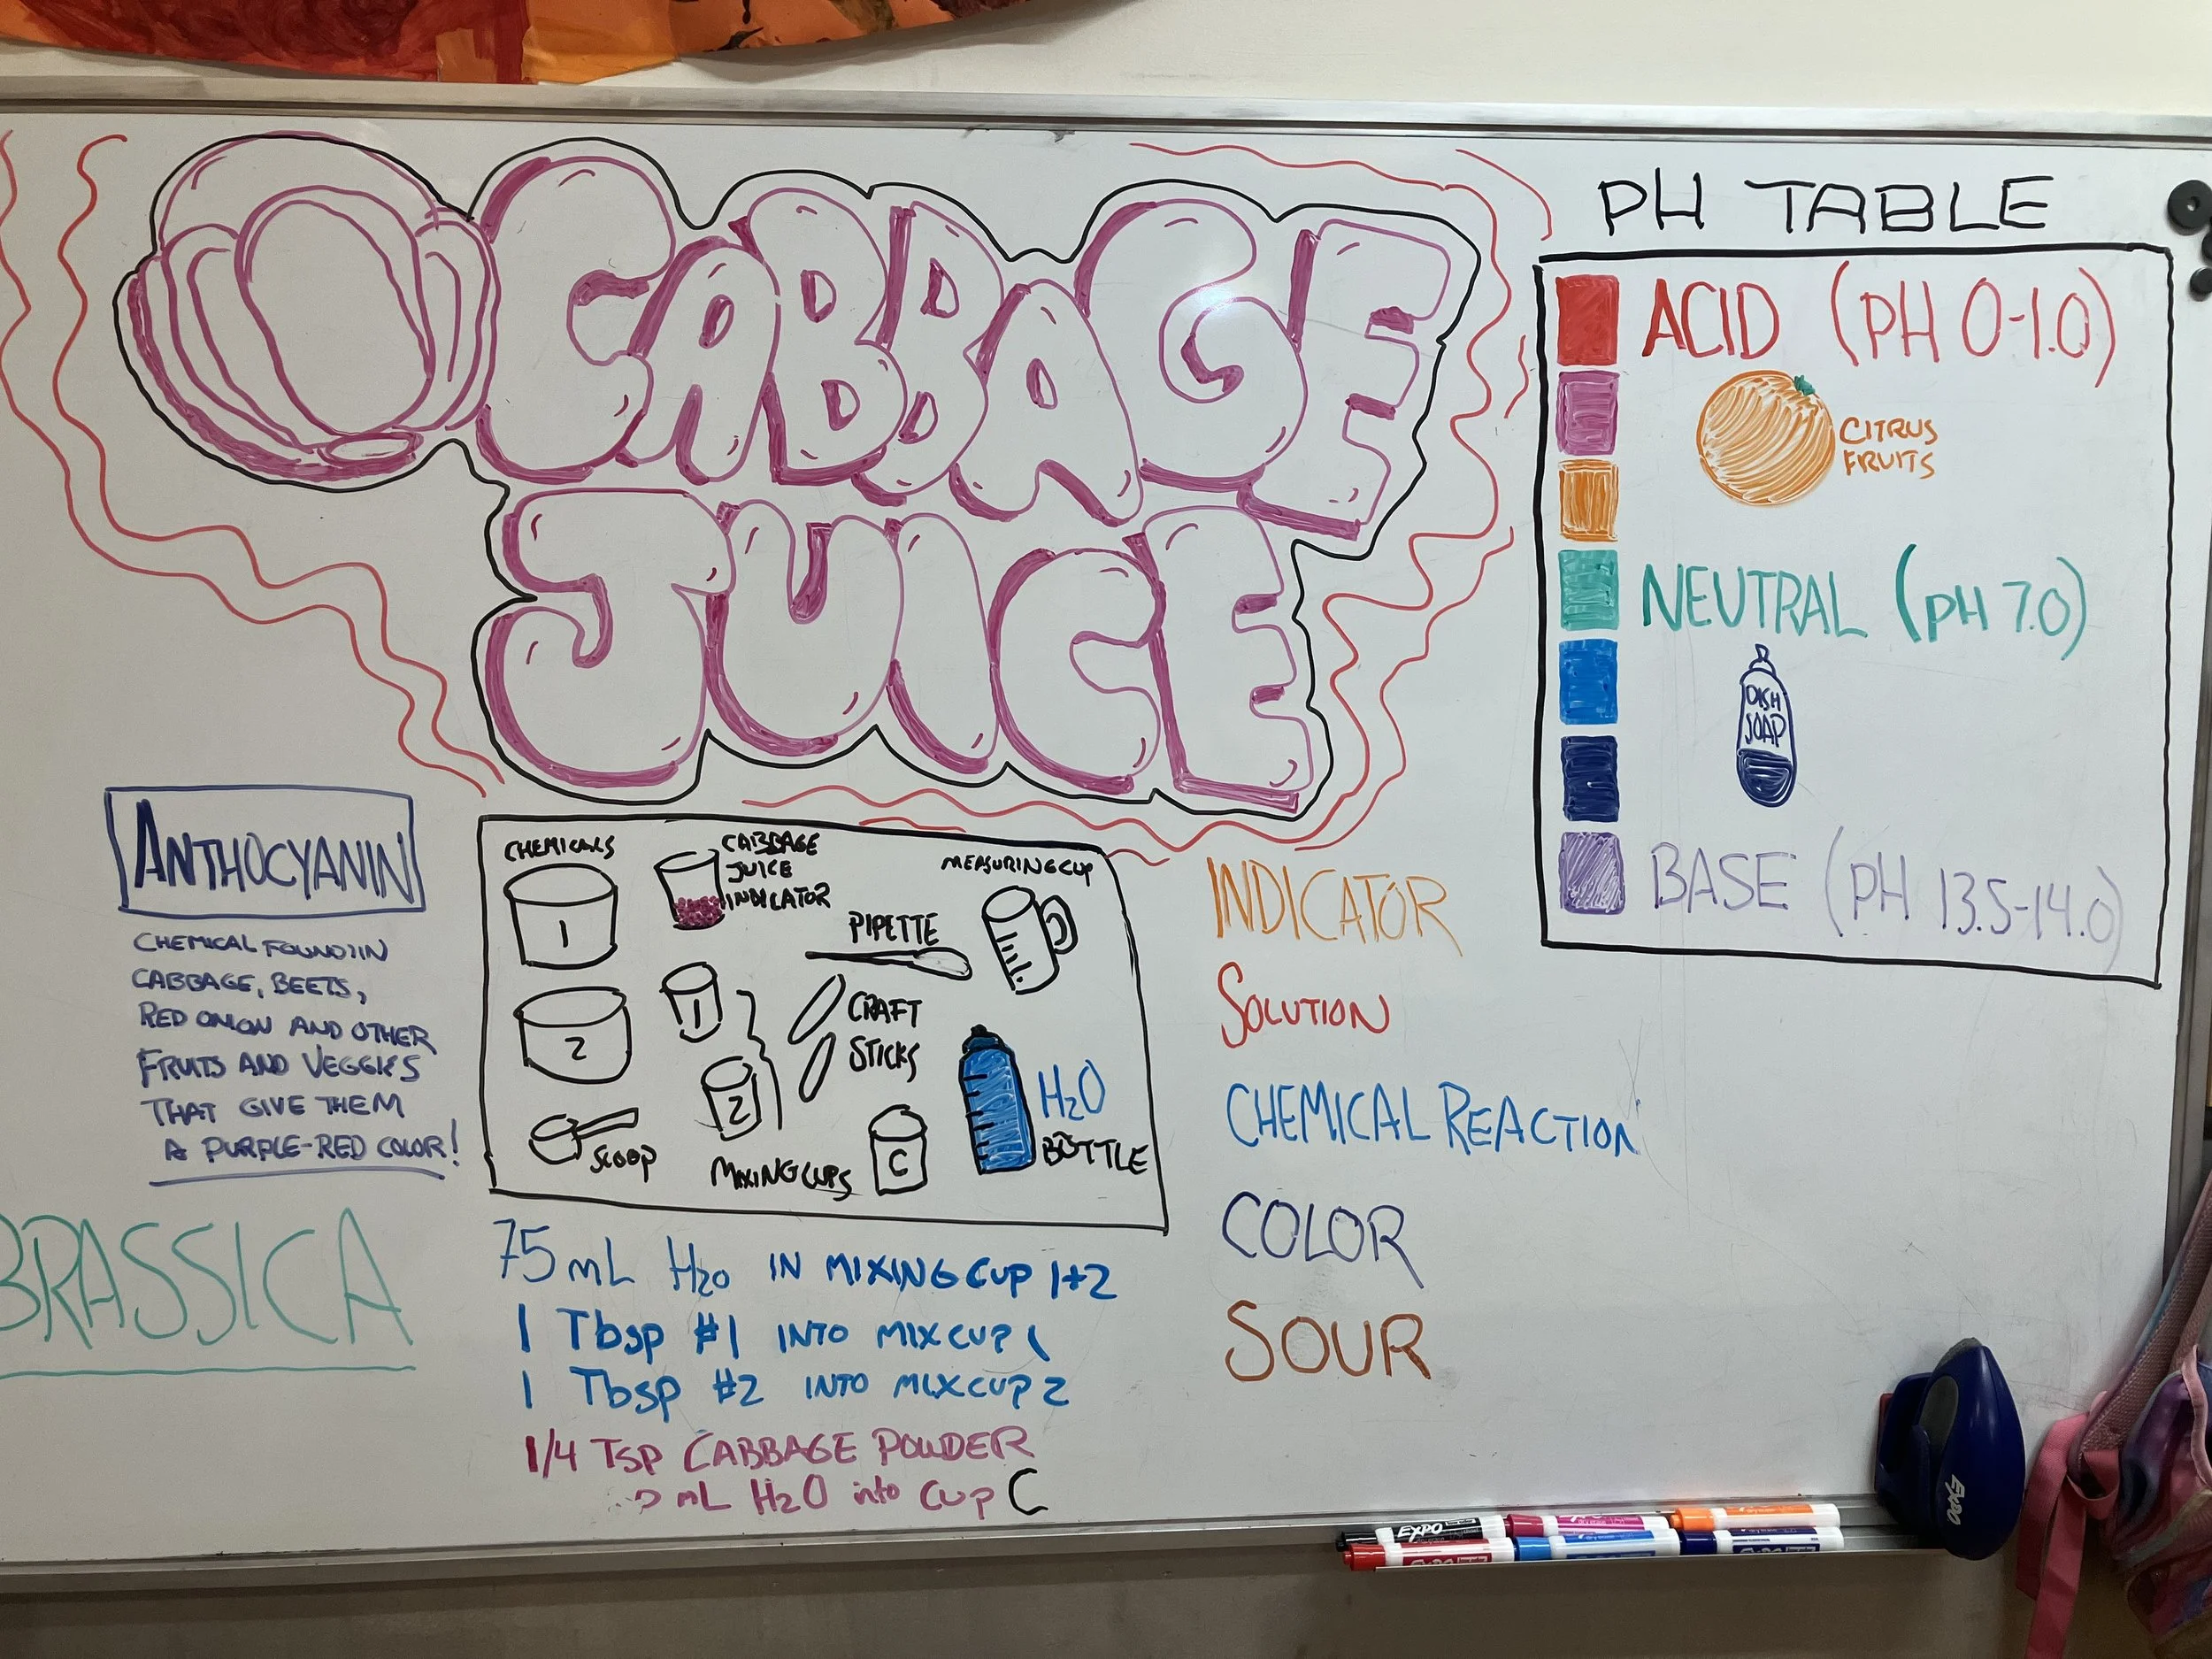 CABBAGE
JUICE
PH TABLE
ACID (PH 0-1.0)
CITRUS
FRUITS
NEUTRAL (PH 7.0)
DISH
SOAP
BASE (PH 13.5-14.0)
ANTHOCYANIN
CHEMICAL FOUND IN
CABBAGE, BEETS,
RED ONION AND OTHER
FRUITS AND VEGGIES
THAT GIVE THEM
A PURPLE-RED COLOR!
BRASSICA
CHEMICALS
1
2
SCOOP
CABBAGE
JUICE
INDICATOR
PIPETTE
MEASURING CUP
1
2
MIXING CUPS
CRAFT
STICKS
C
H2O
BOTTLE
75 mL H2O IN MIXING CUP 1+2
1 Tbsp #1 INTO MIX CUP 1
1 Tbsp #2 INTO MIX CUP 2
1/4 TSP CABBAGE POWDER
mL H2O into CUP C
INDICATOR
SOLUTION
CHEMICAL REACTION
COLOR
SOUR
EXPO
EXPO